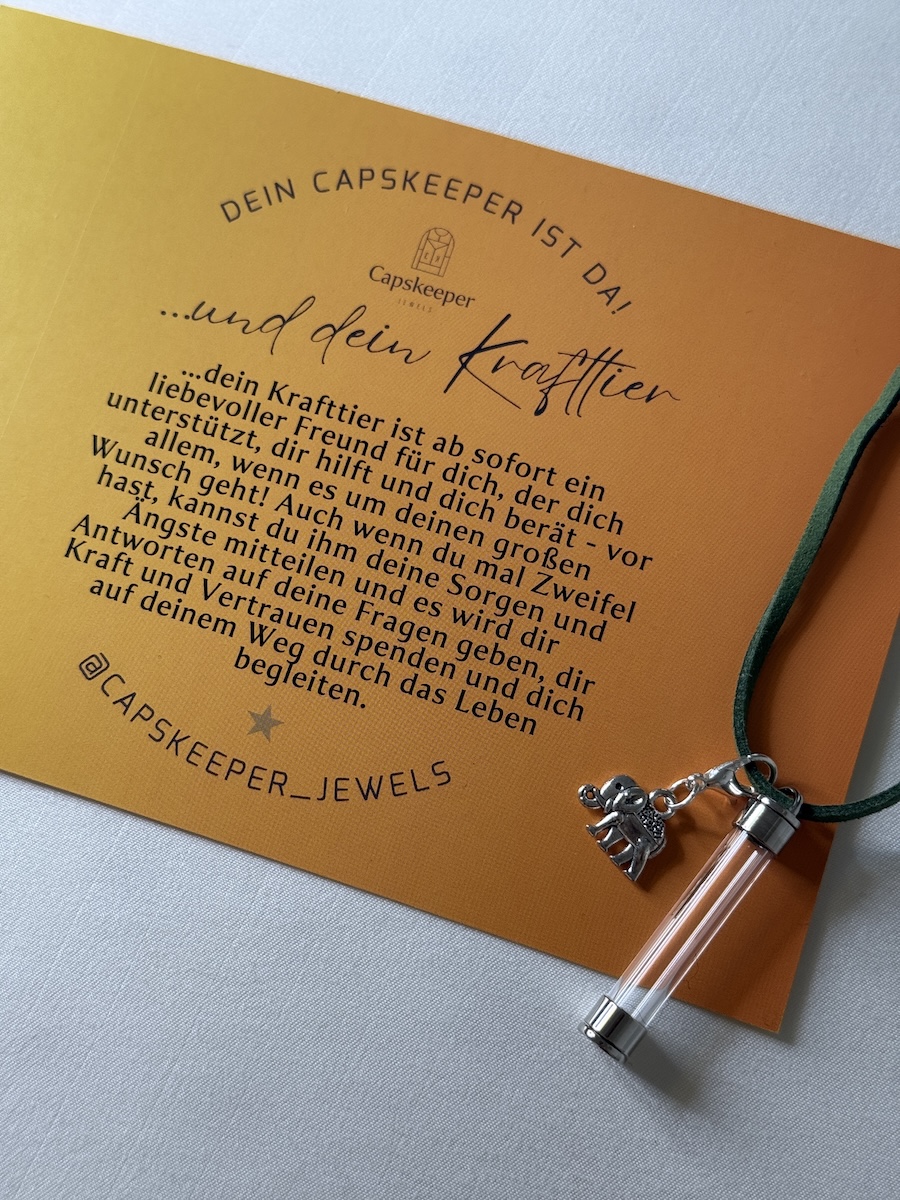 DEIN CAPSKEEPER IST DA!
Capskeeper
JEWELS
...und dein Krafttier
...dein Krafttier ist ab sofort ein
liebevoller Freund für dich, der dich
unterstützt, dir hilft und dich berät - vor
allem, wenn es um deinen großen
Wunsch geht! Auch wenn du mal Zweifel
hast, kannst du ihm deine Sorgen und
Ängste mitteilen und es wird dir
Antworten auf deine Fragen geben, dir
Kraft und Vertrauen spenden und dich
auf deinem Weg durch das Leben
begleiten.
@CAPSKEEPER_JEWELS